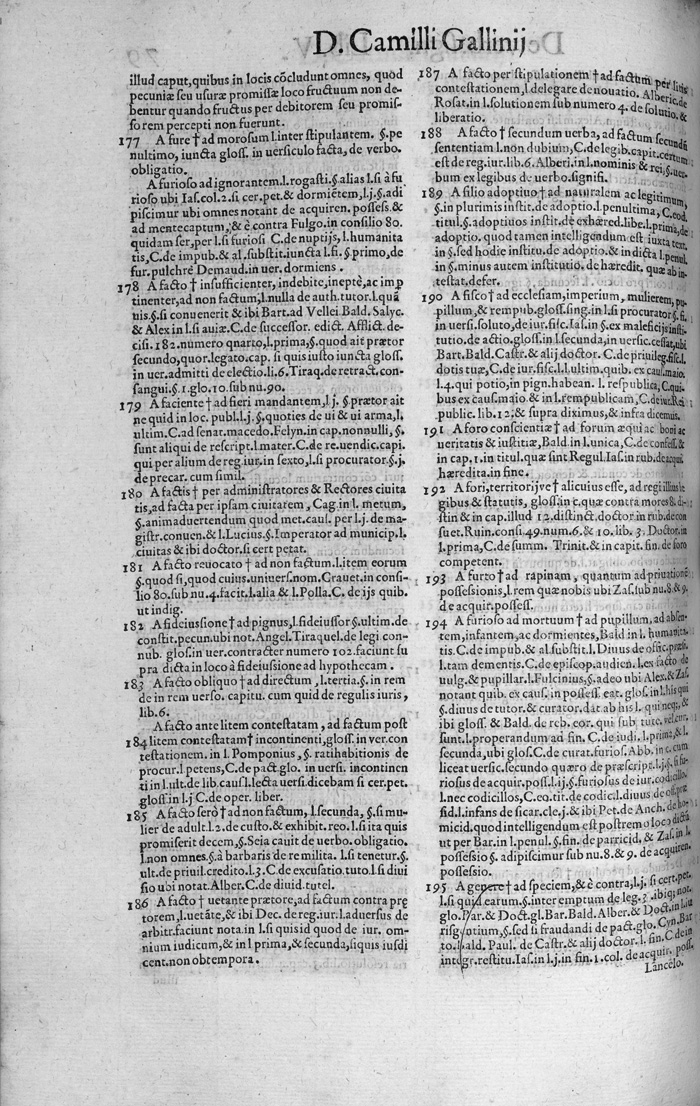 D. Camilli Gallinij
illud caput, quibus in locis cōcludunt omnes, quod
pecuniæ seu usuræ promissæ loco fructuum non de-
bentur quando fructus per debitorem seu promis-
sorem percepti non fuerunt.
177 A fure † ad morosum l. inter stipulantem. §. pe
nultimo, iuncta gloss. in uersiculo facta, de verbo.
obligatio.
A furioso ad ignorantem. l. rogasti. §. alias l. si à fu
rioso ubi Ias. col. 2. si cer. pet. & dormiētem, l. j. §. adi
piscimur ubi omnes notant de acquiren. possess. &
ad mentecaptum, & è contra Fulgo. in consilio 80.
quidam ser, per l. si furiosi C. de nuptijs, l. humanita
tis, C. de impub. & al. substit. iuncta l. fi. §. primo, de
fur. pulchrè Demaud. in uer. dormiens.
178 A facto † insufficienter, indebite, ineptè, ac imp
tinenter, ad non factum, l. nulla de auth. tutor. l. quā
uis. §. si conuenerit & ibi Bart. ad Vellei Bald. Salyc.
& Alex in l. si auiæ. C. de successor. edict. Afflict. de-
cisi. 182. numero qnarto, l. prima, §. quod ait prætor
secundo, quor. legato. cap. si quis iusto iuncta gloss.
in uer. admitti de electio. li. 6. Tiraq. de retract. con-
sangui. §. 1. glo. 10. sub nu. 90.
179 A faciente † ad fieri mandantem, l. j. § prætor ait
ne quid in loc. publ. l. j. §. quoties de ui & ui arma, l.
ultim. C. ad senat. macedo. Felyn. in cap. nonnulli, §.
sunt aliqui de rescript. l. mater. C. de re. uendic. capi.
qui per alium de reg. iur. in sexto, l. si procurator. §. j.
de precar. cum simil.
180 A factis † per administratores & Rectores ciuita
tis, ad facta per ipsam ciuitatem, Cag. in l. metum,
§. animaduertendum quod met. cauf. per l. j. de ma-
gistr. conuen. & l. Lucius. §. Imperator ad municip. l.
ciuitas & ibi doctor. si cert petat.
181 A facto reuocato † ad non factum. l. item eorum
§. quod si, quod cuius uniuers. nom. Crauet. in consi-
lio 80. sub nu. 4. facit. l. alia & l. Polla. C. de ijs quib.
ut indig.
182 A fideiussione † ad pignus, l. fideiussor §. ultim. de
constit. pecun. ubi not. Angel. Tiraquel. de legi con-
nub. glos. in uer. contracter numero 102. faciunt su
pra dicta in loco à fideiussione ad hypothecam.
183 A facto obliquo † ad directum, l. tertia. §. in rem
de in rem uerso. capitu. cum quid de regulis iuris,
lib. 6.
A facto ante litem contestatam, ad factum post
184 litem contestatam † incontinenti, gloss. in ver. con
testationem. in l. Pomponius, §. ratihabitionis de
procur. l. petens, C. de pact. glo. in uersi. incontinen
ti in l. ult. de lib. caus. l. lecta uersi. dicebam si cer. pet.
gloss. in l. j C. de oper. liber.
185 A facto serò † ad non factum, l. secunda, §. si mu-
lier de adult. l. 2. de custo. & exhibit. reo. l. si ita quis
promiserit decem, §. Seia cauit de uerbo. obligatio.
l. non omnes. §. à barbaris de re milita. l. si tenetur. §.
ult. de priuil. credito. l. 3. C. de excusatio. tuto. l. si diui
sio ubi notat. Alber. C. de diuid. tutel.
186 A facto † uetante prætore, ad factum contra prę
torem, l. uetāte, & ibi Dec. de reg. iur. l. aduersus de
arbitr. faciunt nota. in l. si quis id quod de iur. om-
nium iudicum, & in l. prima, & secunda, si quis iusdi
cent. non obtempora.
187 A facto per stipulationem † ad factum per litis
contestationem, l. delegare de nouatio. Alberic. de
Rosat. in l. solutionem sub numero 4. de solutio. &
liberatio.
188 A facto † secundum uerba, ad factum secundū
sententiam l. non dubium, C. de legib. capit. certum
est de reg. iur. lib. 6. Alberi. in l. nominis & rei, §. uer-
bum ex legibus de uerbo. signifi.
189 A filio adoptiuo † ad naturalem ac legitimum,
§. in plurimis instit. de adoptio. l. penultima, C. eod.
titul. §. adoptiuos instit. de exhæred. libe. l. prima, de
adoptio. quod tamen intelligendum est iuxta text.
in §. sed hodie institu. de adoptio. & in dicta l. penul.
in §. minus autem institutio. de hæredit. quæ ab in-
testat. defer.
190 A fisco † ad ecclesiam, imperium, mulierem, pu-
pillum, & rempub. gloss. sing. in l. si procurator §. fi.
in uersi. soluto, de iur. fisc. Ias. in §. ex maleficijs insti-
tutio. de actio. gloss. in l. secunda, in uersic. cessat, ubi
Bart. Bald. Castr. & alij doctor. C. de priuileg. fisc. l.
dotis tuæ, C. de iur. fisc. l. l. ultim. quib. ex caus. maio.
l. 4. qui potio, in pign. habean. l. respublica, C. qui-
bus ex caus. maio. & in l. rempublicam, C. de iur. Rei
public. lib. 12. & supra diximus, & infra dicemus.
191 A foro conscientiæ † ad forum æqui ac boni ac
ueritatis & iustitiæ, Bald. in l. unica, C. de confess. &
in cap. 1. in titul. quæ sint Regul. Ias. in rub. de acqui.
hæredita. in fine.
192 A fori, territorijve † alicuius esse, ad regi illius le
gibus & statutis, gloss. in c. quæ contra mores 8. di-
stin & in cap. illud 12. distinct. doctor in rub. de con
suet. Ruin. consi. 49. num. 6. & 10. lib. 3. Doctor. in
l. prima, C. de summ. Trinit. & in capit. fin. de foro
competent.
193 A furto † ad rapinam, quantum ad priuationē
possessionis, l. rem quæ nobis ubi Zas. sub nu. 8. & 9.
de acquir. possess.
194 A furioso ad mortuum † ad pupillum, ad absen-
tem, infantem, ac dormientes, Bald in l. humanita-
tis. C. de impub. & al. substit. l. Diuus de offic. præsi.
l. tam dementis. C. de episcop. audien. l. ex facto de
uulg. & pupillar. l. Fulcinius, §. adeo ubi Alex. & Zas.
notant quib. ex caus. in possess. eat. glos. in l. his qui
§. diuus de tutor. & curator. dat. ab his l. qui neq; &
ibi gloss. & Bald. de reb. eor. qui sub tute. velcur.
sunt. l. properandum ad fin. C. de iudi. l. prima, & l.
secunda, ubi glos. C. de curat. furios. Abb. in c. cum
liceat uersic. secundo quæro de præscript. l. j. §. si fu-
riosus de acquir. poss. l. ij. §. furiosus de iur. codicillor.
l. nec codicillos, C. eo. tit. de codic. l. diuus de off. præ-
sid. l. infans de sicar. cle. j. & ibi Pet. de Anch. de ho-
micid. quod intelligendum est postremo loco dictā
ut per Bar. in l. penul. §. fin. de parricid. & Zas. in l.
possessio §. adipiscimur sub nu. 8. & 9. de acquiren.
possessio.
195 A genere † ad speciem, & è contra, l. j. si cert. pet.
l. si quis earum. §. inter emptum de leg. 3. ibiq; not.
glo. Bar. & Doct. gl. Bar. Bald. Alber. & Doct. in l. iu
risgẽntium, §. sed si fraudandi de pact. glo. Cyn. Bar
to. Bald. Paul. de Castr. & alij doctor. l. fin. C. de in
integr. restitu. Ias. in l. j. in fin. 1. col. de acquir. poss.
Lancelo.